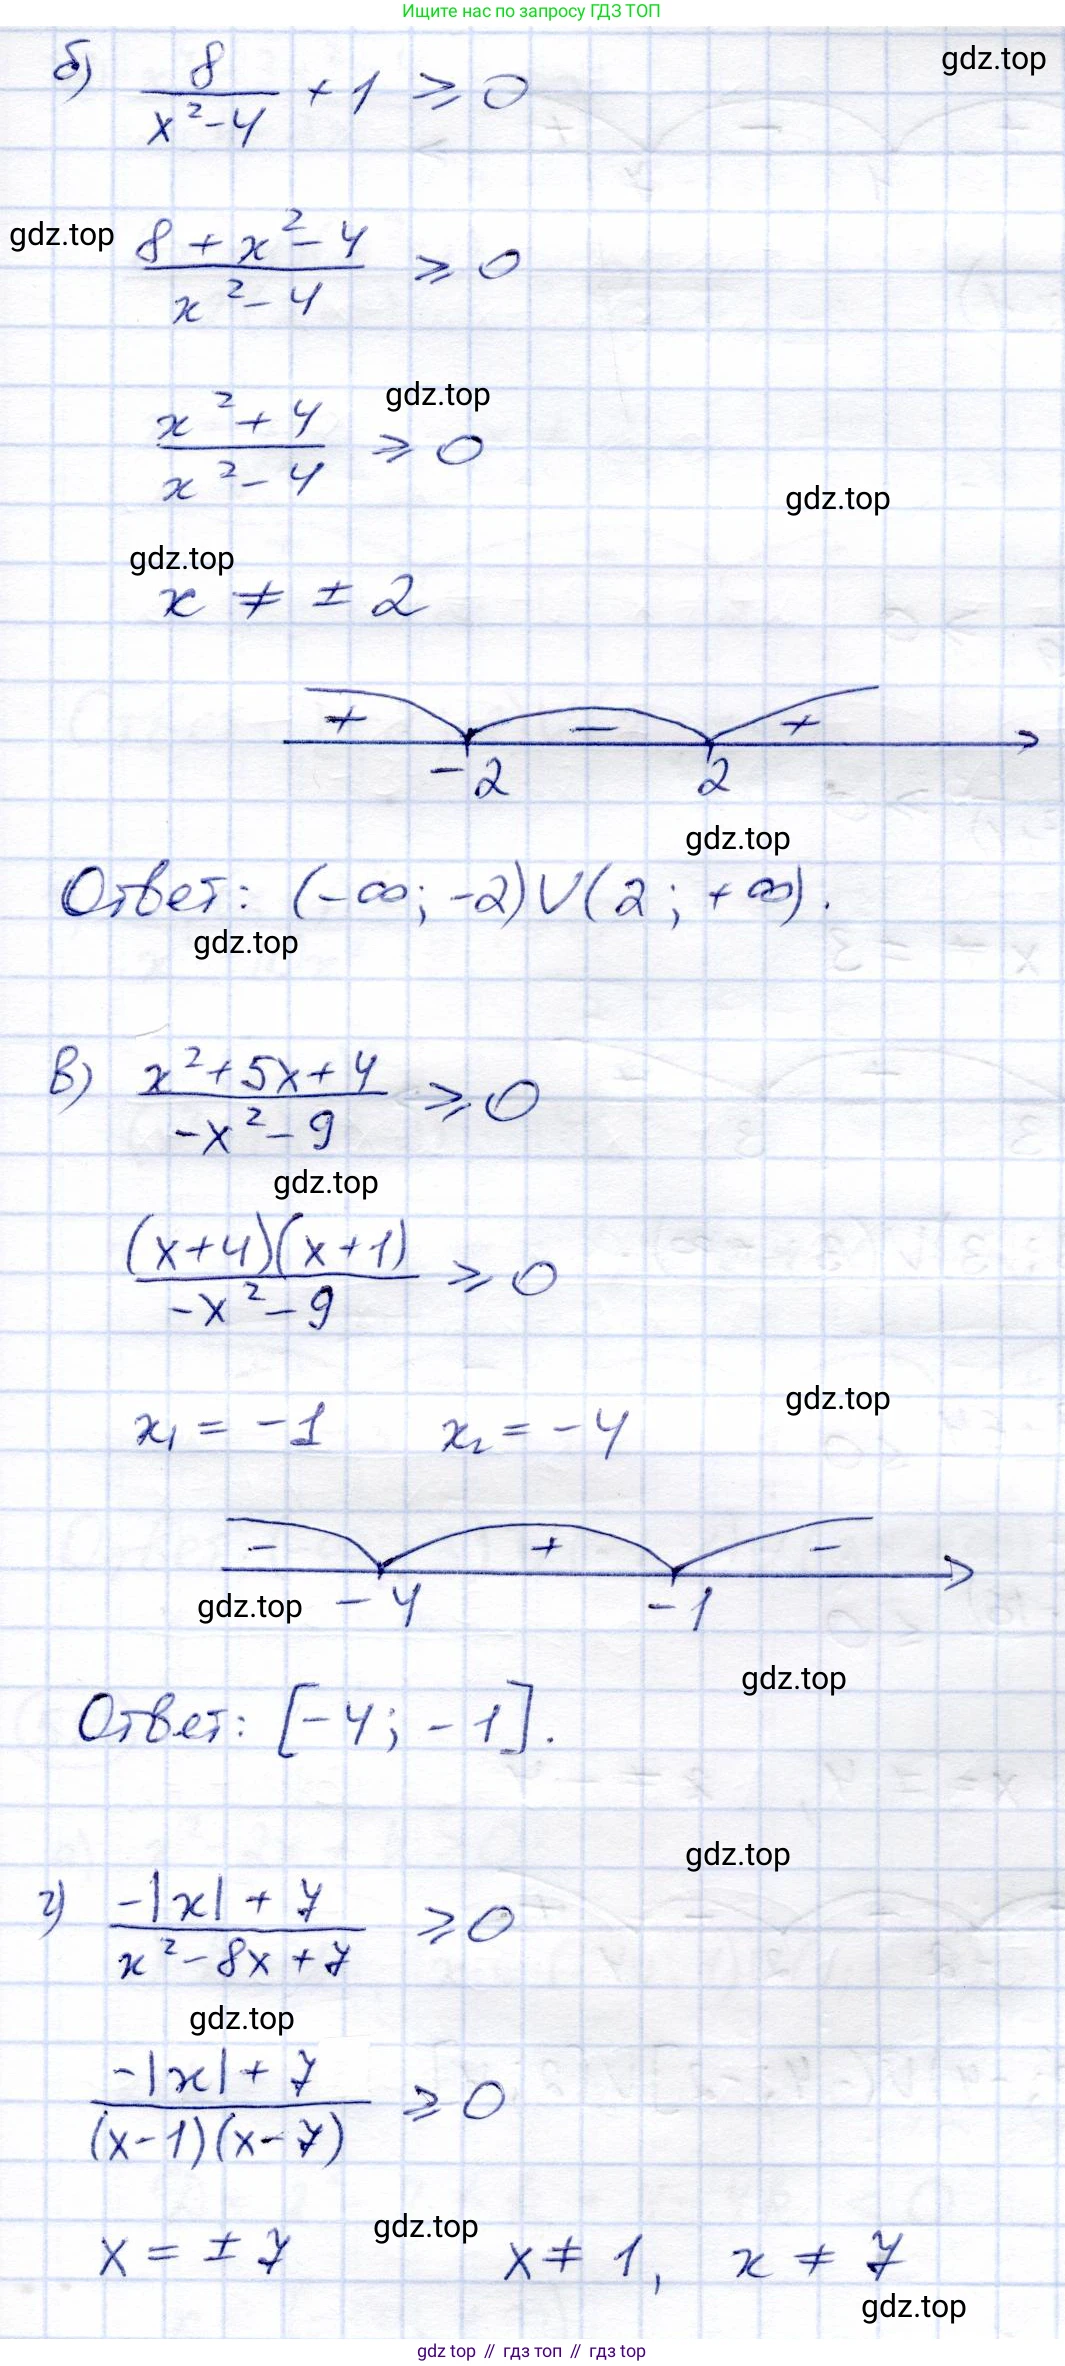 Ищите нас по запросу ГДЗ ТОП
б) 8/(x²-4) + 1 ≥ 0
gdz.top
gdz.top
(8 + x² - 4)/(x² - 4) ≥ 0
gdz.top
(x² + 4)/(x² - 4) ≥ 0
gdz.top
gdz.top
x ≠ ± 2
+ - +
-2 2
gdz.top
Ответ: (-∞; -2)∪(2; +∞).
gdz.top
в) (x² + 5x + 4)/(-x² - 9) ≥ 0
gdz.top
(x+4)(x+1)/(-x² - 9) ≥ 0
gdz.top
x₁ = -1 x₂ = -4
- + -
gdz.top -4 -1
gdz.top
Ответ: [-4; -1].
gdz.top
г) (-|x| + 7)/(x² - 8x + 7) ≥ 0
gdz.top
(-|x| + 7)/((x-1)(x-7)) ≥ 0
gdz.top
x = ± 7 x ≠ 1, x ≠ 7
gdz.top
gdz top // гдз топ // gdz top